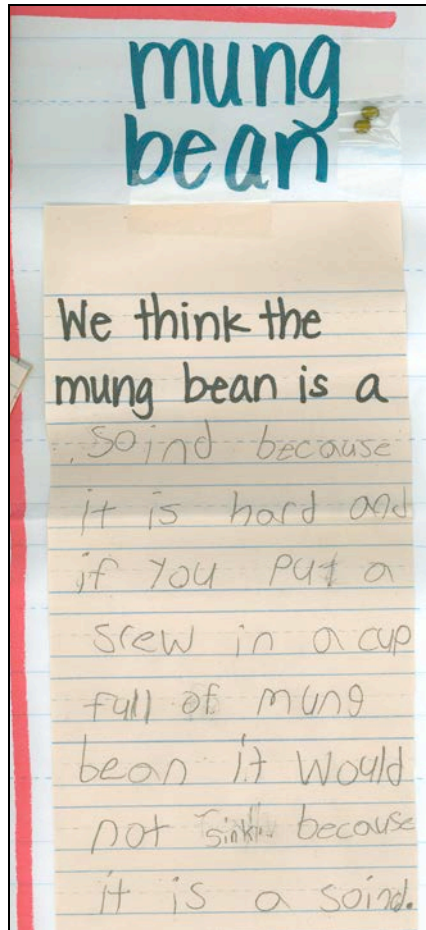 mung
bean
We think the
mung bean is a
soind because
it is hard and
if you put a
srew in a cup
full of mung
bean it would
not sink because
it is a soind.